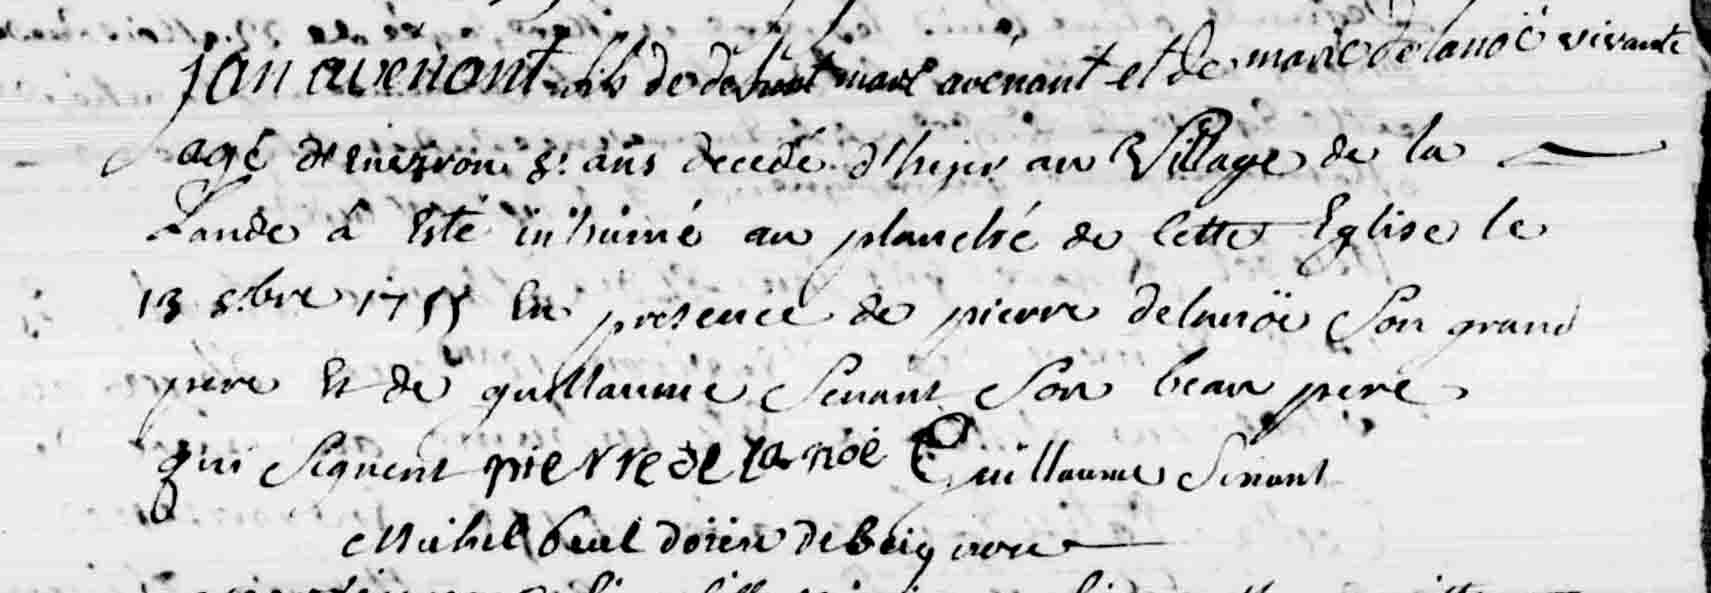 jan avenant fils de defunt marc avénant et de marie delanoë vivante
agé d'environ 8. ans decedé d'hyer au Village de la
Lande à Esté inhumé au planché de Cette Eglise le
13 8.bre 1755 En presence de pierre delanöe Son grand
pere Et de guillaume Senant Son beau pere
qui Signent pierre de la noë Guillaume Senant
Michel doien de Beignon